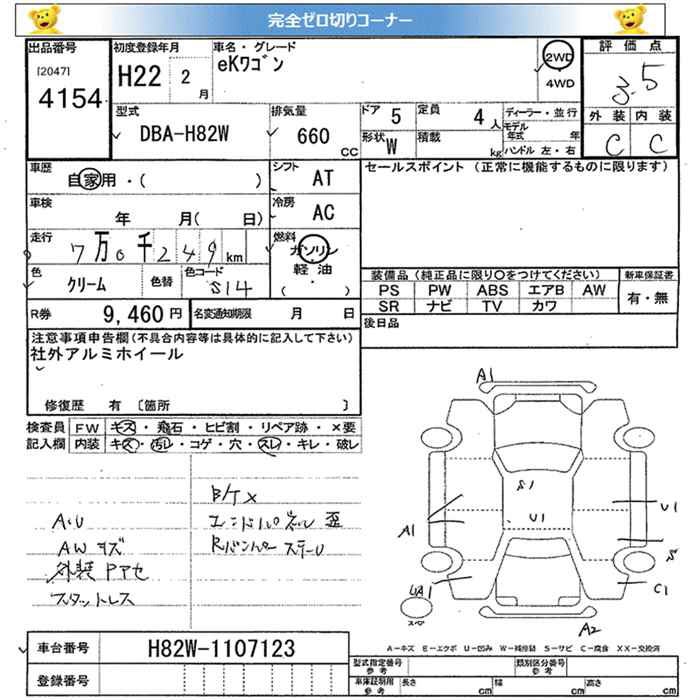 完全ゼロ切りコーナー
出品番号
[2047]
4154
初度登録年月
H22 2 月
車名・グレード
eKワゴン
2WD
4WD
評価点
3.5
外装 内装
C C
型式
DBA-H82W
排気量
660 CC
ドア 5
定員 4 人
形状 W
積載 kg
ディーラー・並行
モデル年式 年
ハンドル 左・右
車歴
自家用・( )
シフト AT
車検
年 月( 日)
冷房 AC
走行
7万0千249 km
燃料 ガソリン
軽油
( ・ )
色 クリーム
色替
色コード S14
R券 9,460 円
名変通知期限 月 日
セールスポイント (正常に機能するものに限ります)
装備品(純正品に限り〇をつけてください)
PS PW ABS エアB AW
SR ナビ TV カワ
新車保証書
有・無
後日品
注意事項申告欄(不具合内容等は具体的に記入して下さい)
社外アルミホイール
修復歴 有 〔箇所 〕
検査員 FW キズ・飛石・ヒビ割・リペア跡・×要
記入欄 内装 キズ・汚レ・コゲ・穴・スレ・キレ・破レ
A・U
AWキズ
外装Pアセ
スタットレス
B/T×
エンドパネル歪
RバンパーステーU
A1
S1
U1
U1
A1
S
UA1
C1
スペア
A2
A-キズ E-エクボ U-凹み W-補修跡 S-サビ C-腐食 XX-交換済
車台番号 H82W-1107123
登録番号
型式指定番号 参考
類別区分番号 参考
車庫証明用 参考
長さ cm
幅 cm
高さ cm